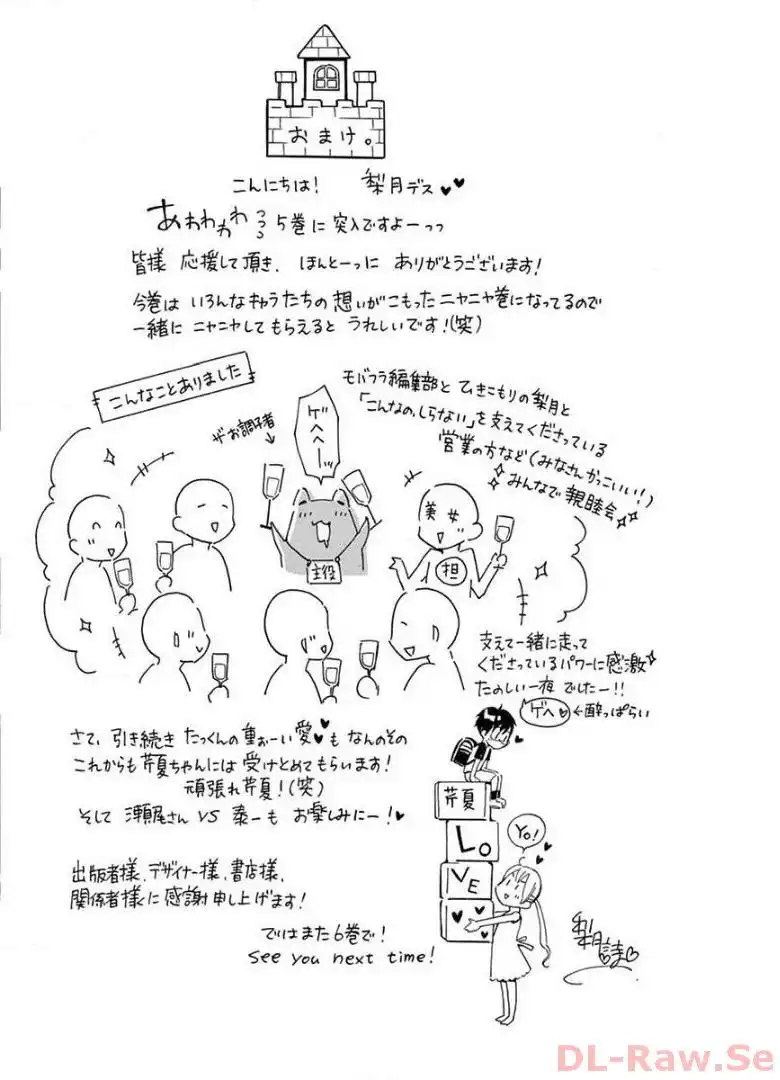 おまけ。
こんにちは! 梨月デス♥♥
あわわわわっっっ5巻に突入ですよーっっ
皆様 応援して頂き、ほんとーっに ありがとうございます!
今巻は いろんなキャラたちの 想いがこもった ニヤニヤ巻になってるので
一緒に ニヤニヤしてもらえると うれしいです!(笑)
こんなことありました
モバフラ編集部と ひきこもりの梨月と
「こんなの、しらない」を支えてくださっている
営業の方など(みなさんかっこいい!)
みんなで親睦会
ザお調子者
↓
ゲヘヘーッ
主役
美女
担
支えて一緒に走って
くださっているパワーに感激
たのしい一夜でしたー!!
ゲヘ♥
←酔っぱらい
さて、引き続き たっくんの重おーい愛♥も なんのその
これからも芹夏ちゃんには 受けとめてもらいます!
頑張れ芹夏!(笑)
そして 瀬尾さん VS 泰一も お楽しみにー!♥
芹夏
LO
VE
♥♥
♥
Yo!
出版者様、デザイナー様、書店様、
関係者様に感謝申し上げます!
ではまた6巻で!
See you next time!
梨月詩♡
DL-Raw.Se